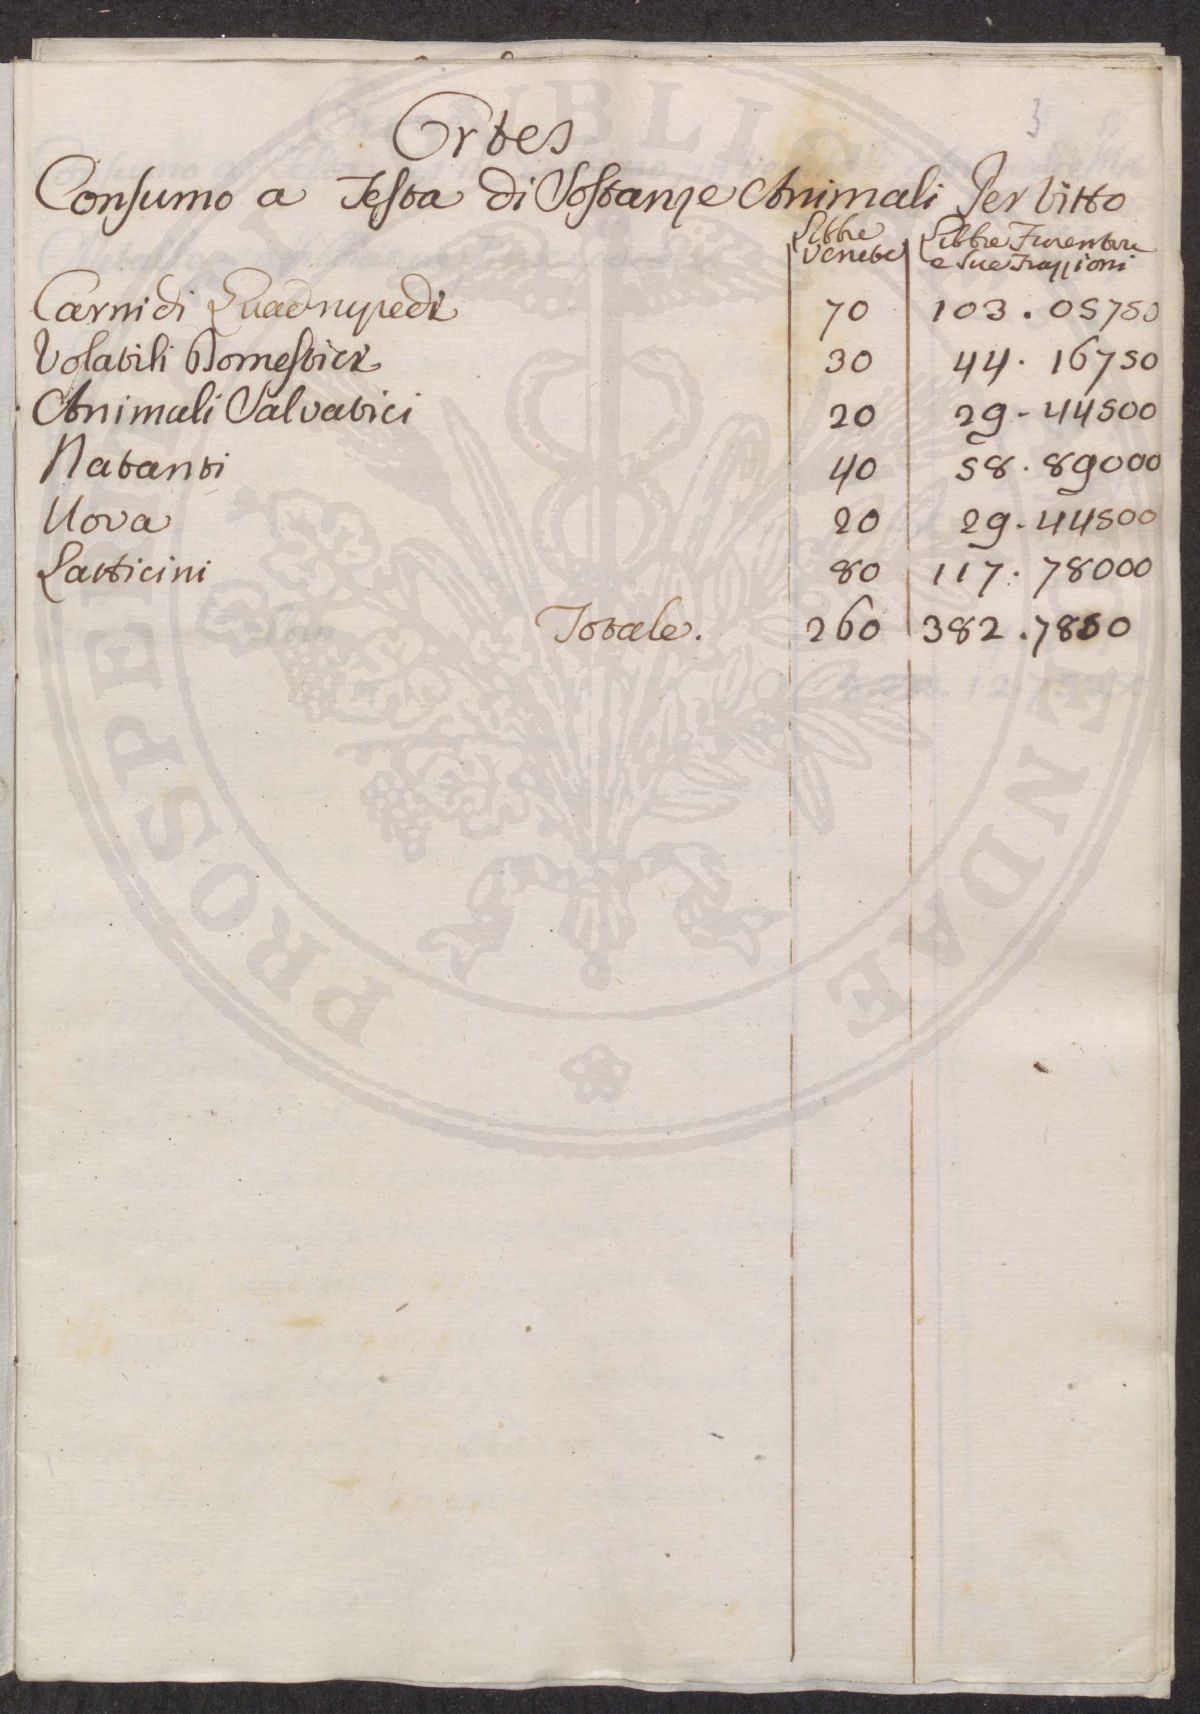 3
Ortes
Consumo a Testa di Sostanze Animali Per Vitto
Libbre Venete Libbre Fiorentine e sue Frazzioni
Carni di Quadrupedi 70 103.05750
Volatili Domestici 30 44.16750
Animali Salvatici 20 29.44500
Natanti 40 58.89000
Uova 20 29.44500
Latticini 80 117.78000
Totale. 260 382.7850
PUBLICAE
PROSPERITATI
AUGENDAE